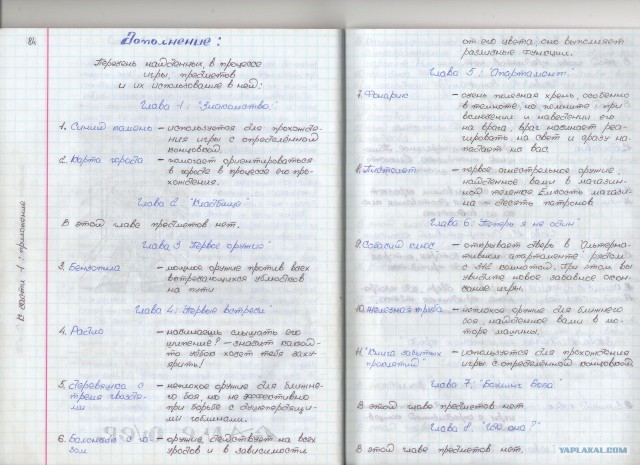 84
Дополнение:
Перечень найденных, в процессе
игры, предметов
и их использование в ней:
Глава 1: "Знакомство"
1. Синий камень – используется для прохожде-
ния игры с определённой
концовкой.
2. Карта города – помогает ориентироваться
в городе в процессе его про-
хождения.
Глава 2 "Кладбище"
В этой главе предметов нет.
Глава 3 "Первое оружие"
3. Бензопила – мощное оружие против всех
встречающихся ублюдков
на пути
Глава 4: "Первые встречи"
4. Радио – начинаешь слышать его
шипение? – значит какой-
то урод хочет тебя заху-
ярить!
5. Деревяшка с – неплохое оружие для ближне-
тремя гвоздя- го боя, но не эффективно
ми при борьбе с
гоблинами.
6. Баллончик с га- – оружие, действует на всех
зом уродов и в зависимости
В части 1: приложение
от его цвета оно выполняет
различные функции.
Глава 5: "Апартамент"
7. Фонарик – очень полезная хрень, особенно
в темноте, но помните: при
включении и наведении его
на врага, враг начинает реа-
гировать на свет и сразу на-
падает на вас.
8. Пистолет – первое огнестрельное оружие,
найденное вами в магазин-
ной тележке. Ёмкость магази-
на – десять патронов
Глава 6: "Теперь я не один"
9. ключ – открывает дверь в Альтерна-
тивном апартаменте рядом
с комнатой. При этом вы
увидите новое забавное окон-
чание игры.
10. Железная труба – неплохое оружие для ближнего
боя, найденное вами в мо-
торе машины.
11. "Книга забытых – используется для прохождения
проклятий" игры с определённой концовкой.
Глава 7: "Боулинг Боба"
В этой главе предметов нет
Глава 8. "Где она?"
В этой главе предметов нет.
YAPLAKAL.COM